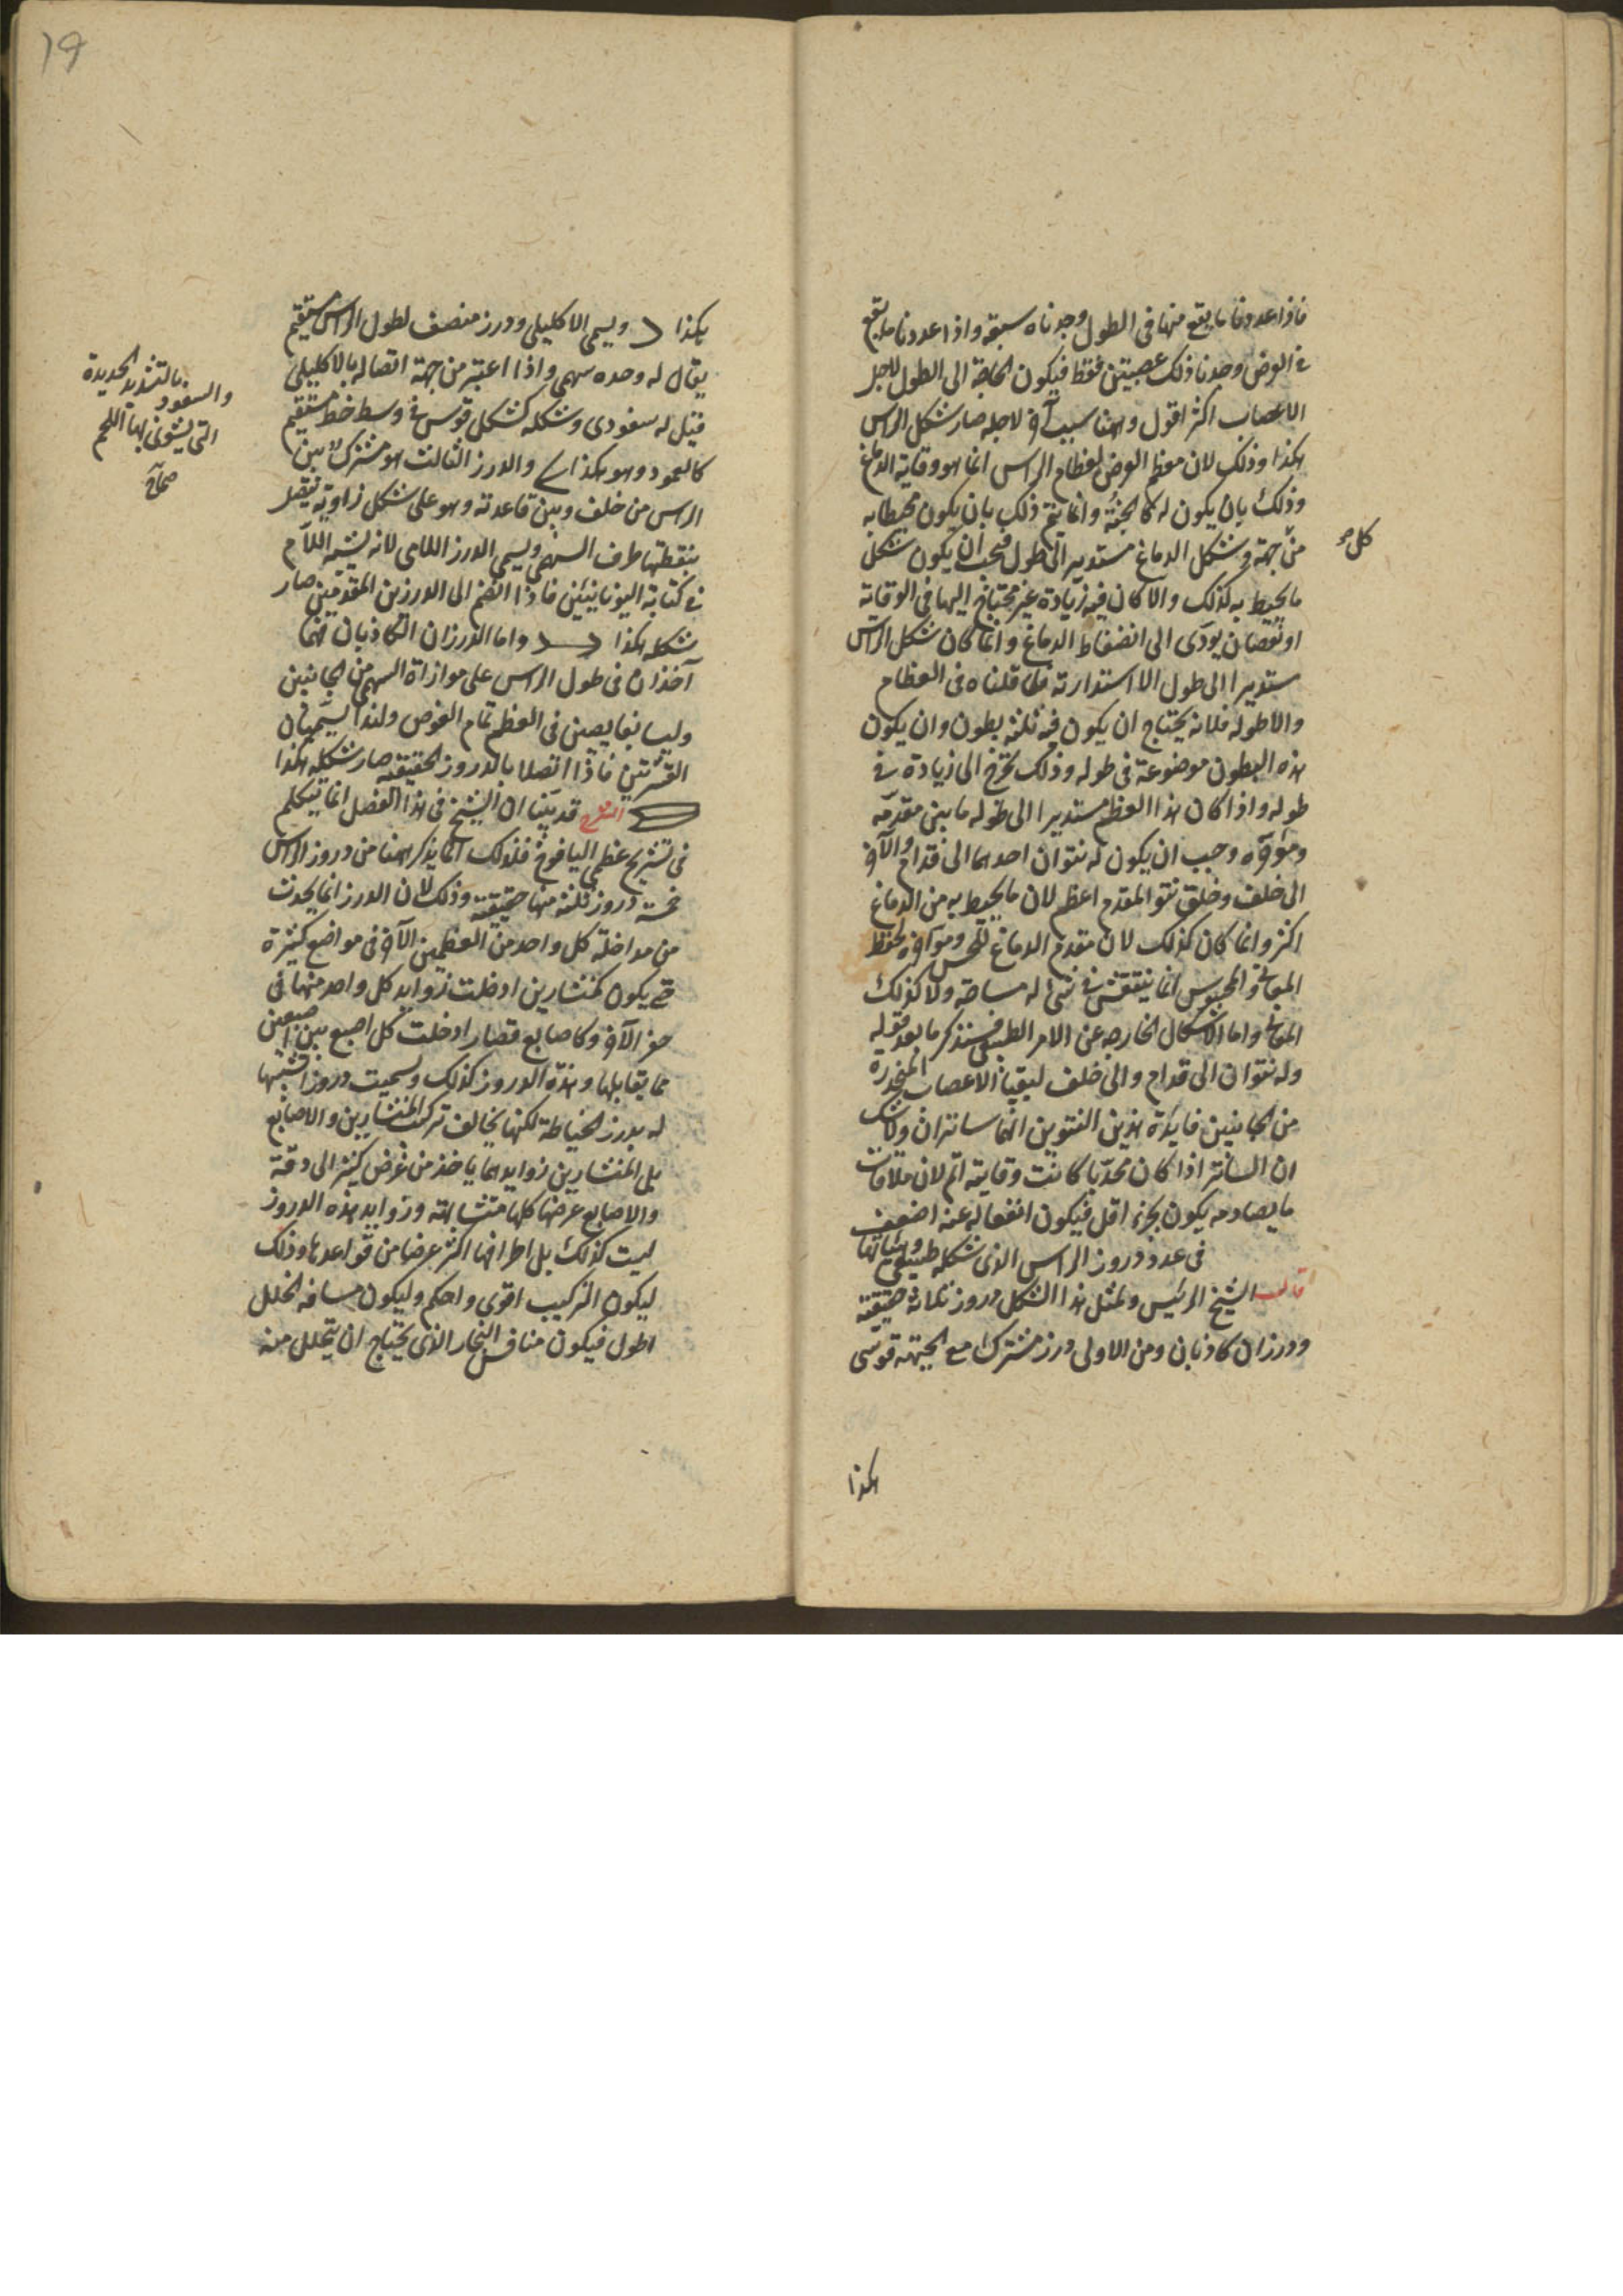 فاذا عددنا ما يقع منها فى الطول وجدناه سبعة واذا عددنا ما يقع
فى العرض وجدنا ذلك عصبتين فقط فيكون الحاجة الى الطول لاجل
الاعصاب اكثر اقول وههنا سبب آخر لاجله صار شكل الراس
هكذا وذلك لان معظم الغرض لعظام الراس انما هو وقاية الدماغ
وذلك بان يكون له كالجنة وانما يتم ذلك بان يكون محيطا به
من كل جهة وشكل الدماغ مستدير الى طول فيجب ان يكون شكل
ما يحيط به كذلك والا كان فيه زيادة غير محتاج اليها فى الوقاية
او نقصان يودى الى انضغاط الدماغ وانما كان شكل الراس
مستديرا الى طول اما استدارته فلما قلناه فى العظام
واما طوله فلانه يحتاج ان يكون فيه ثلثة بطون وان يكون
هذه البطون موضوعة فى طوله وذلك يحوج الى زيادة فى
طوله واذا كان هذا العظم مستديرا الى طوله ما بين مقدمه
وموخره وجب ان يكون له نتوان احدهما الى قدام والآخر
الى خلف وخلق نتو المقدم اعظم لان ما يحيط به من الدماغ
اكثر وانما كان كذلك لان مقدم الدماغ للحس وموخره لحفظ
المعانى والمحسوس انما ينتقش فى شئ له مساحة ولا كذلك
المعانى واما الاشكال الخارجه عن الامر الطبيعى فسنذكر ما بعد قوله
وله نتوان الى قدام والى خلف ليقيا الاعصاب المنحدرة
من الجانبين فايدة هذين النتوين انهما ساتران ولا شك
ان الساتر اذا كان محدبا كانت وقايته اتم لان ملاقات
ما يصادمه يكون بجزء اقل فيكون انفعاله عنه اضعف
فى عدد دروز الراس الذى شكله طبيعى وهيئاتها
قال الشيخ الرئيس ولمثل هذا الشكل دروز ثلاثة حقيقية
ودرزان كاذبان ومن الاولى درز مشترك مع الجبهة قوسى
هكذا
كل صح
19
هكذا ويسمى الاكليلى ودرز منصف لطول الراس مستقيم
يقال له وحده سهمى واذا اعتبر من جهة اتصاله بالاكليلى
قيل له سفودى وشكله كشكل قوس فى وسطه خط مستقيم
كالعمود وهو هكذا والدرز الثالث هو مشترك بين
الراس من خلف وبين قاعدته وهو على شكل زاوية يتصل
بنقطتها طرف السهمى ويسمى الدرز اللامى لانه يشبه اللام
فى كتابة اليونانيين فاذا انضم الى الدرزين المقدمين صار
شكله هكذا واما الدرزان الكاذبان فهما
آخذان فى طول الراس على موازاة السهم من الجانبين
وليسا بغايصين فى العظم تمام الغوص ولهذا يسميان
القشرتين فاذا اتصلا بالدروز الحقيقية صار شكله هكذا
الشرح قد بينا ان الشيخ فى هذا الفصل انما يتكلم
فى تشريح عظمى اليافوخ فلذلك انما يذكر ههنا من دروز الراس
خمسة دروز ثلثة منها حقيقية وذلك لان الدرز انما يحدث
من مداخلة كل واحد من العظمين الآخر فى مواضع كثيرة
حتى يكون كمنشارين ادخلت زوايد كل واحد منهما فى
حفر الآخر وكاصابع قصار ادخلت كل اصبع بين اصبعين
مما يقابلها وهذه الدروز كذلك وسميت دروزا تشبيها
له بدرز الخياطة لكنها يخالف تركيب المنشارين والاصابع
بل المنشارين زوايدهما ياخذ من عرض كثير الى دقة
والاصابع عرضها كلها متشابهة وزوايد هذه الدروز
ليست كذلك بل اطرافها اكثر عرضا من قواعدها وذلك
ليكون التركيب اقوى واحكم وليكون مسافه الخلل
اطول فيكون منافس البخار الذى يحتاج ان يتحلل منه
والسفود بالتشديد الحديدة
التى يشوى بها اللحم
صحاح